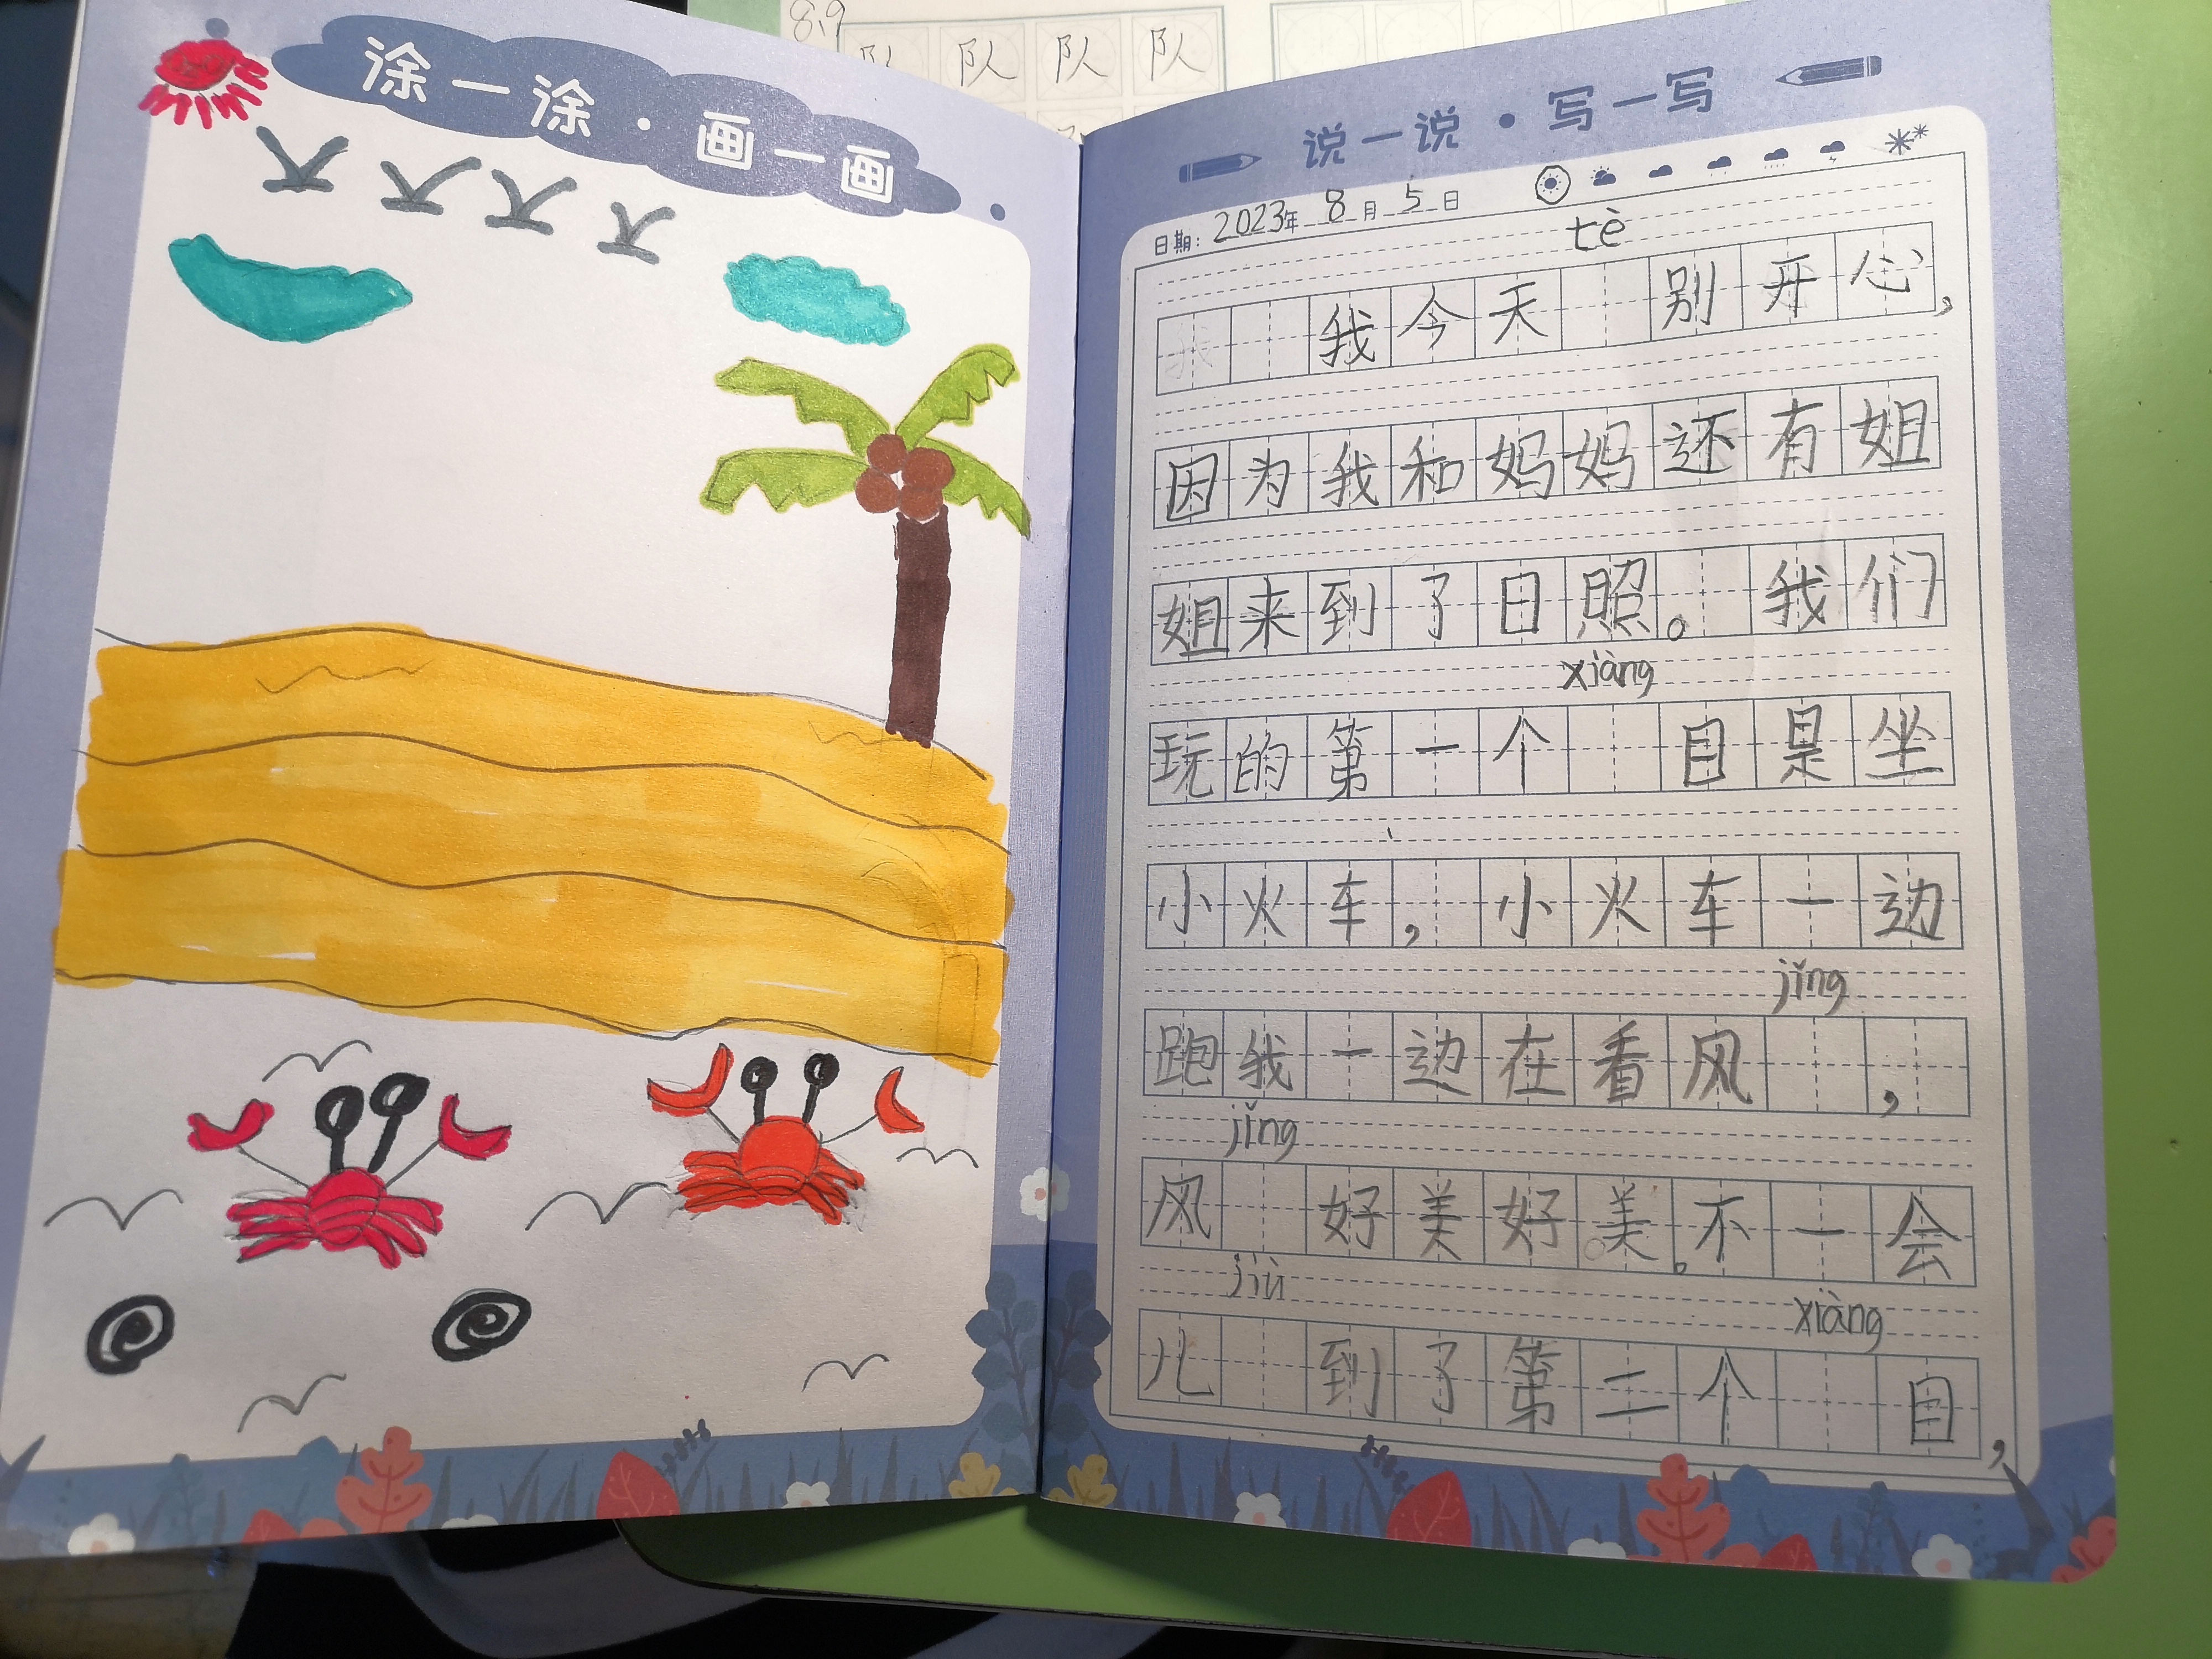 8.9
队 队 队 队
涂一涂·画一画
说一说·写一写
日期：2023年 8月 5日
tè
我今天 别开心，
因为我和妈妈还有姐
姐来到了日照。我们
xiàng
玩的第一个 目是坐
小火车，小火车一边
jǐng
跑我一边在看风 ，
jǐng
风 好美好美。不一会
jiù xiàng
儿 到了第二个 目，